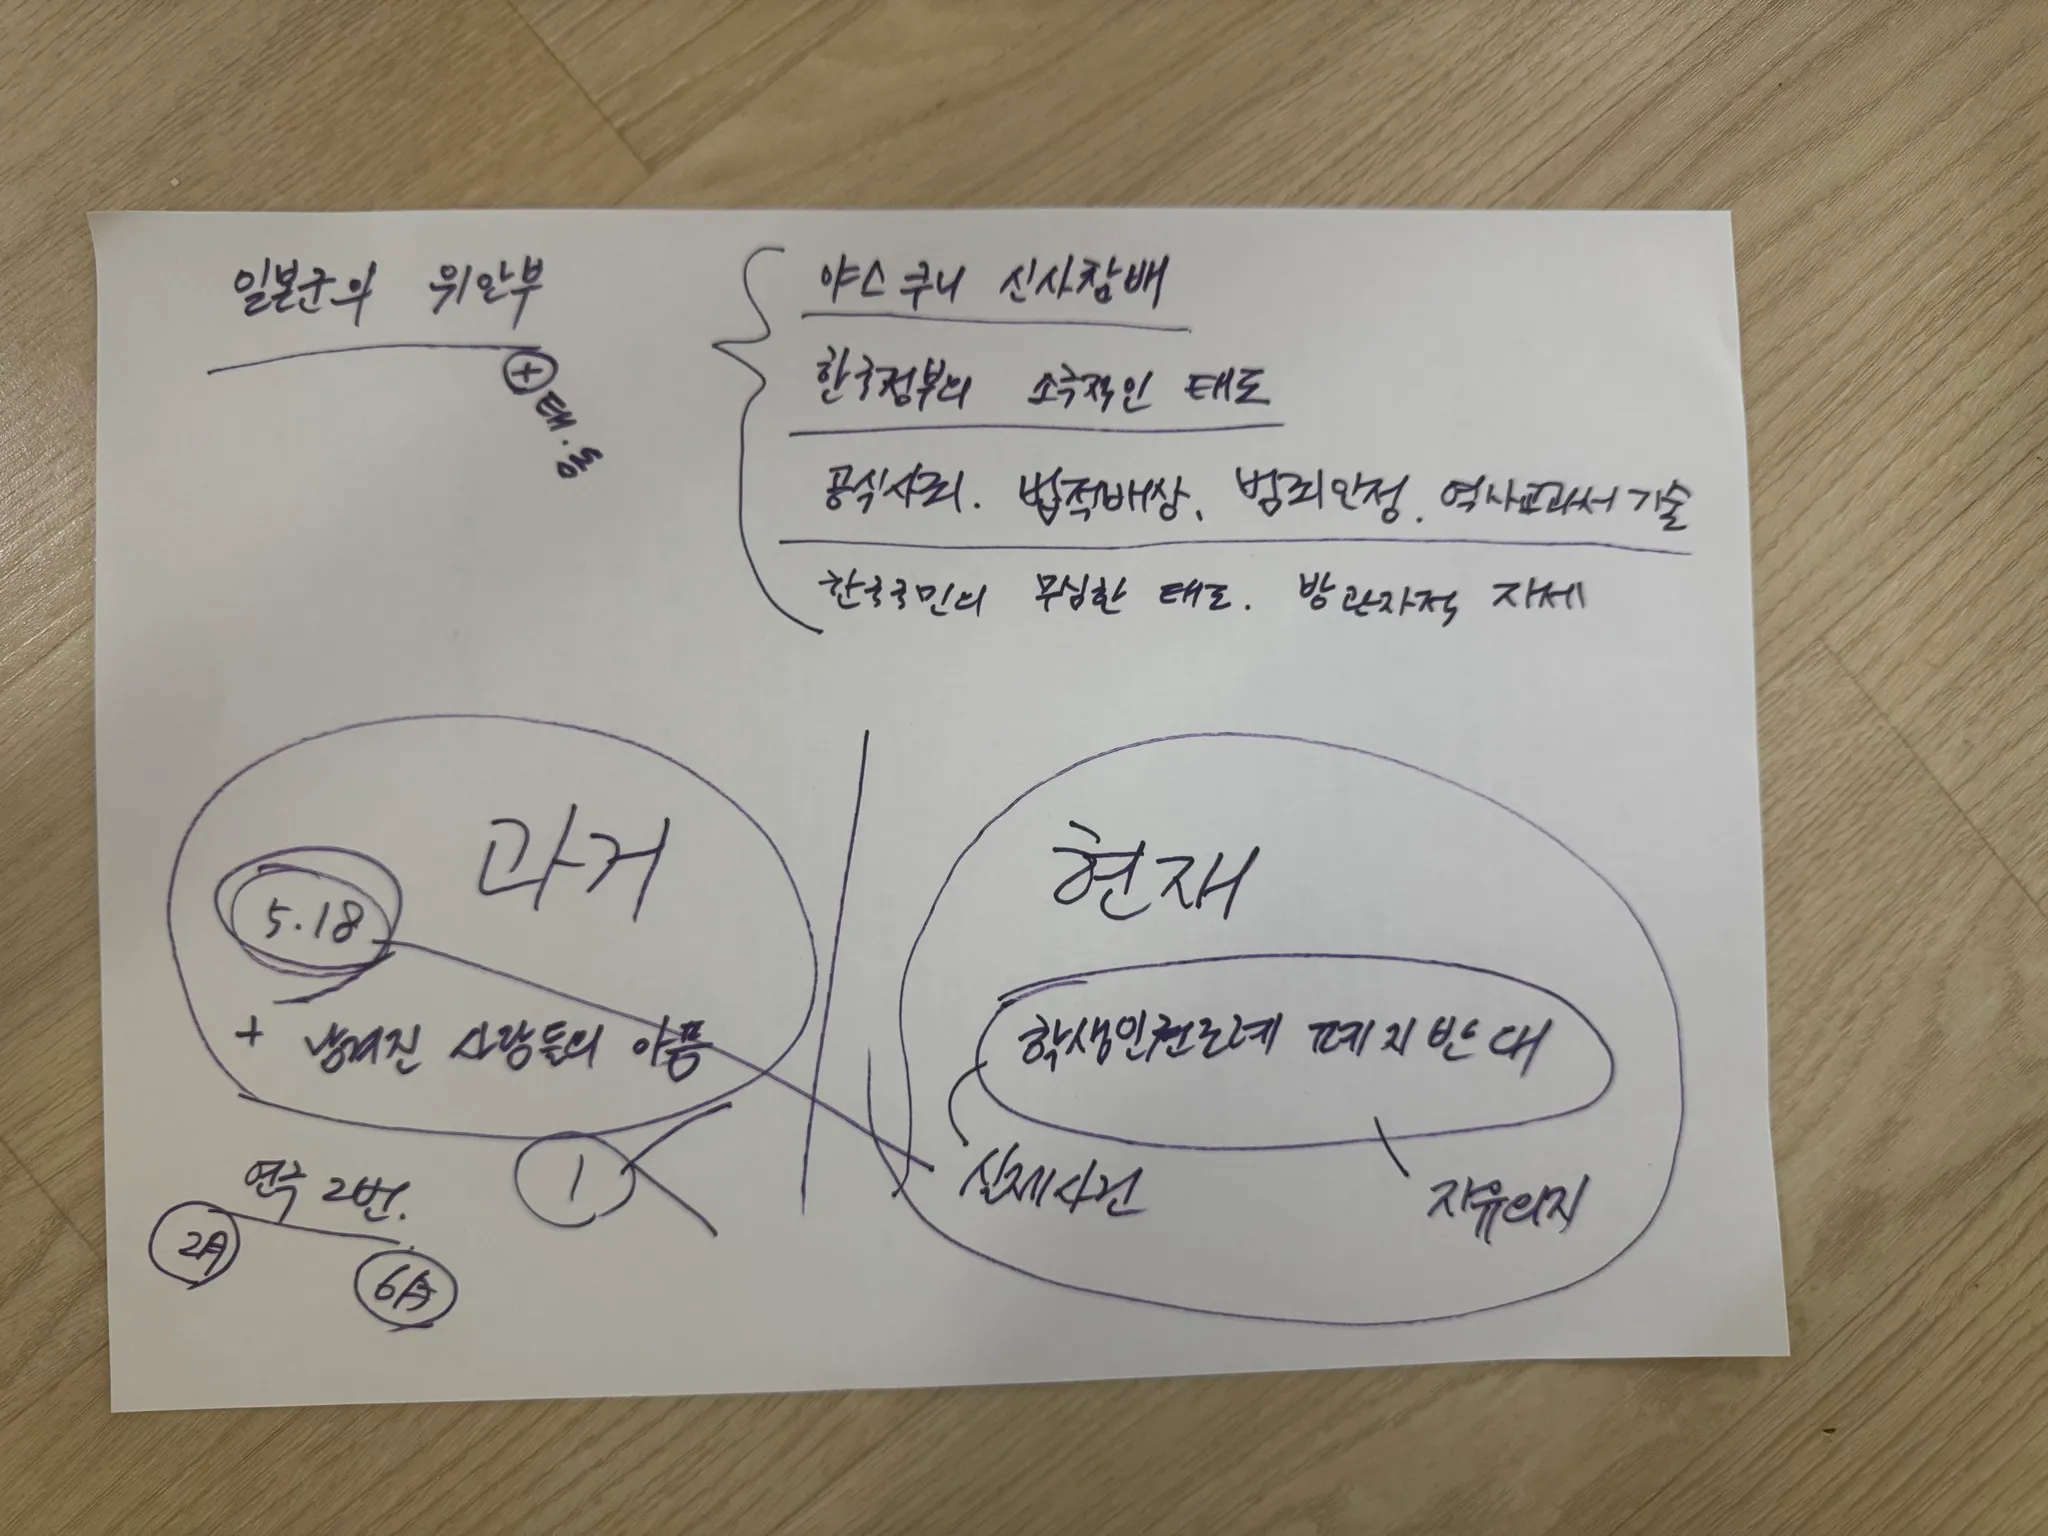 일본군의 위안부
+ 태.동
야스쿠니 신사참배
한국정부의 소극적인 태도
공식사죄. 법적배상, 범죄인정. 역사교과서 기술
한국국민의 무심한 태도. 방관자적 자세
과거
5.18
+ 남겨진 사람들의 아픔
1
연극 2번.
2月
6月
현재
학생인권조례 폐지반대
실제사건
자유의지